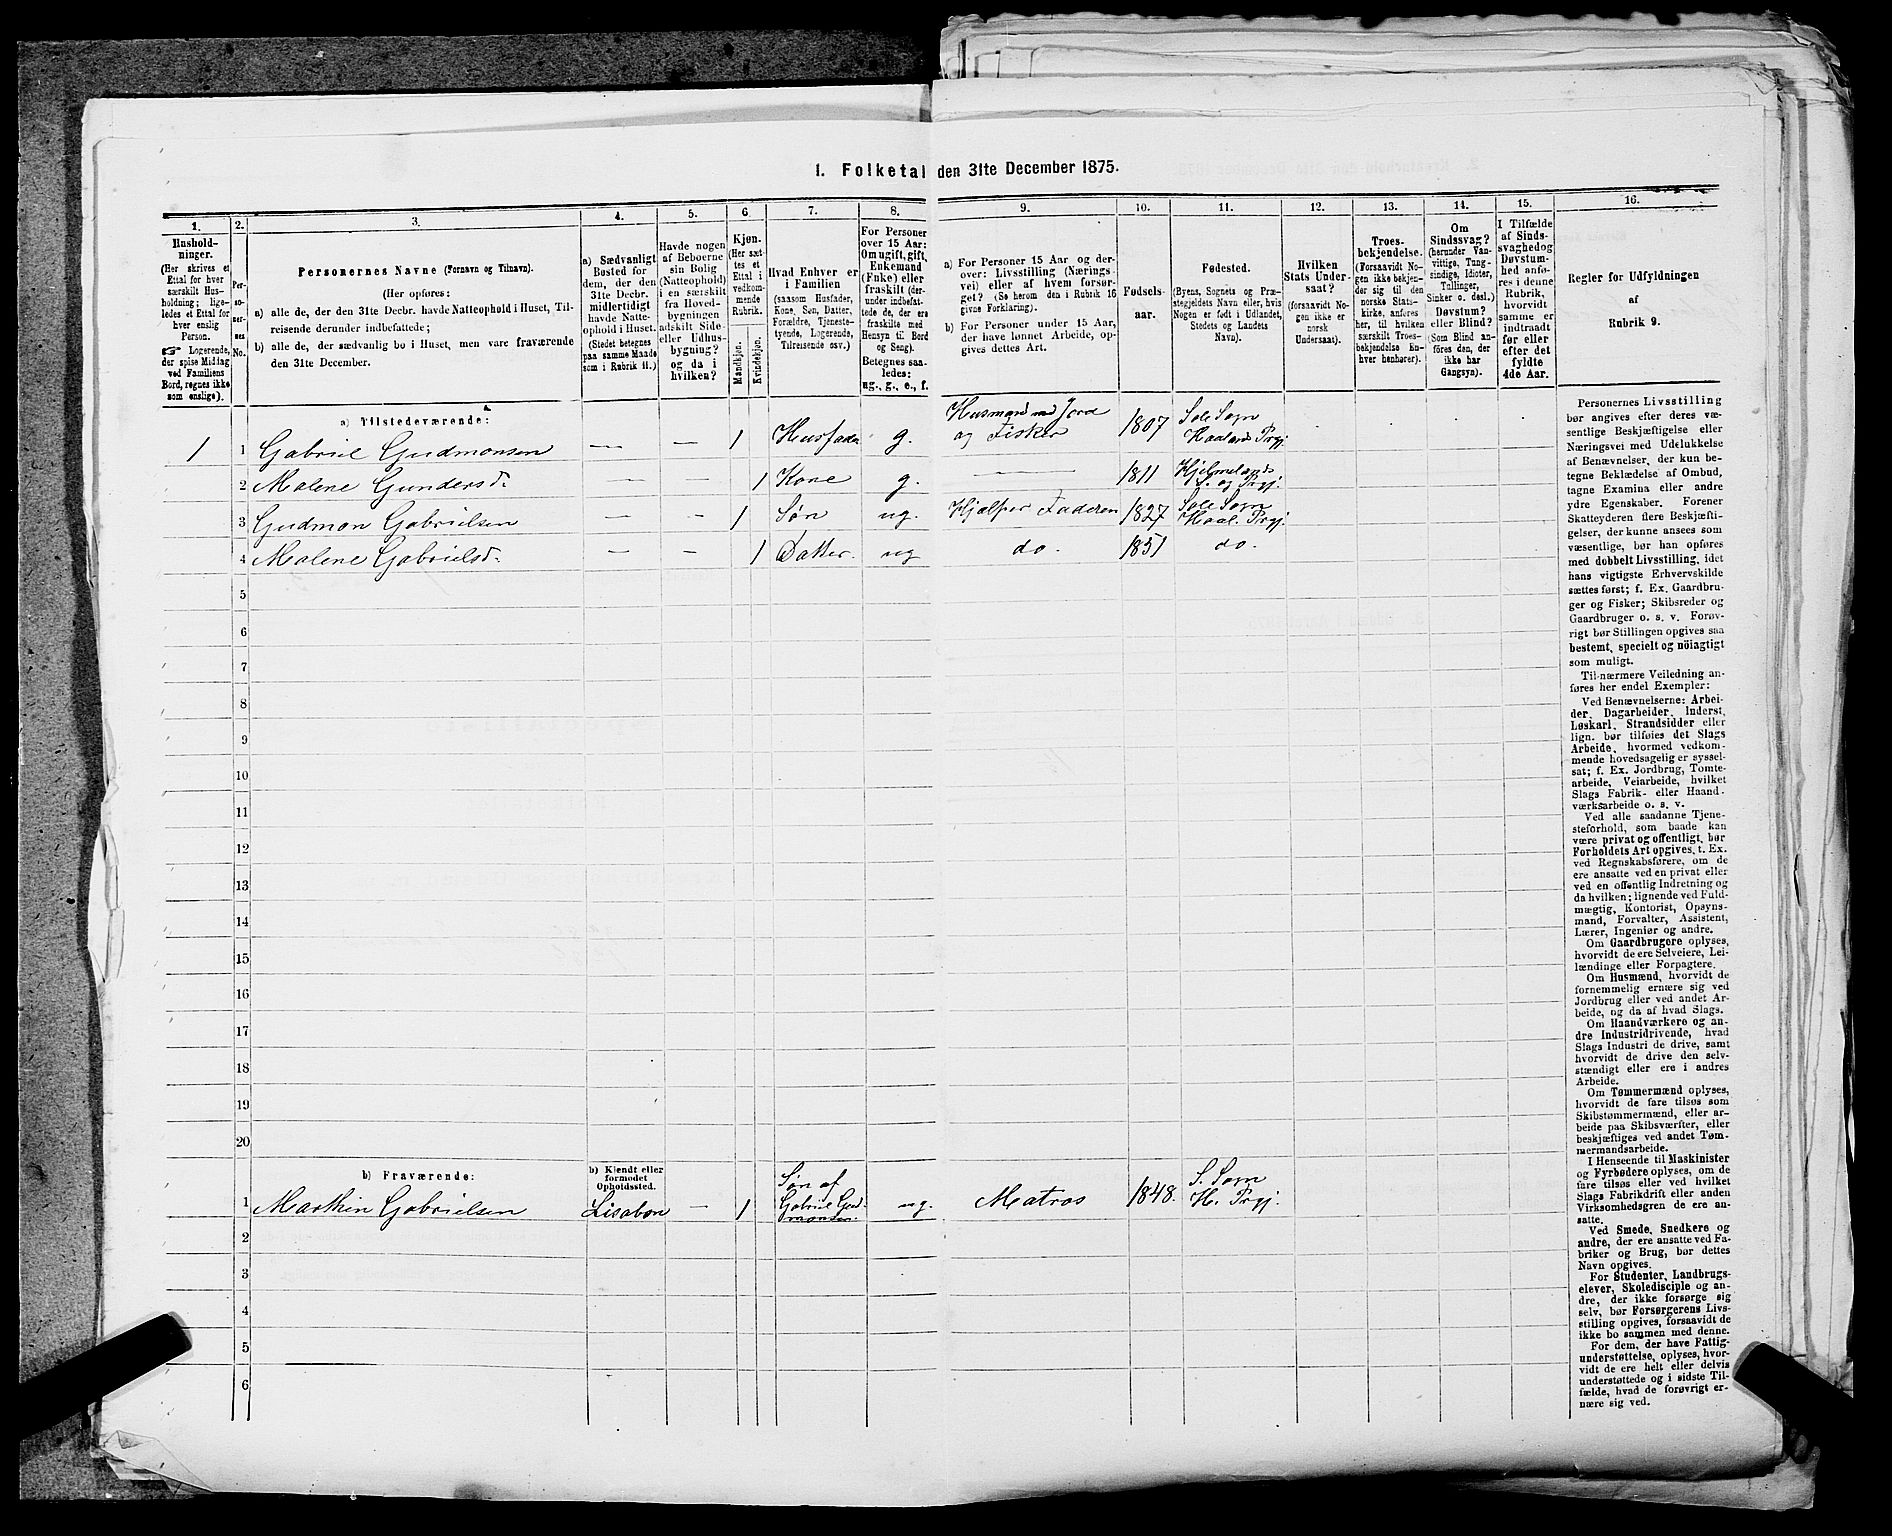 1. Folketal den 31te December 1875.
1.
Hushold-
ninger.
(Her skrives et
Ettal for hver
særskilt Hus-
holdning; lige-
ledes et Ettal for
hver enslig
Person.
☞ Logerende,
der spise Middag
ved Familiens
Bord, regnes ikke
som enslige).
2.
Per-
so-
ner-
nes
No.
3.
Personernes Navne (Fornavn og Tilnavn).
(Her opføres:
a) alle de, der den 31te Decbr. havde Natteophold i Huset, Til-
reisende derunder indbefattede;
b) alle de, der sædvanlig bo i Huset, men vare fraværende
den 31te December.
4.
a) Sædvanligt
Bosted for
dem, der den
31te Decbr.
midlertidigt
havde Natte-
ophold i Huset.
(Stedet betegnes
paa samme Maade
som i Rubrik 11.)
5.
Havde nogen
af Beboerne
sin Bolig
(Natteophold)
i en særskilt
fra Hoved-
bygningen
adskilt Side-
eller Udhus-
bygning?
og da i
hvilken?
6.
Kjøn.
(Her sæt-
tes et
Ettal i
vedkom-
mende
Rubrik.
Mandkjøn.
Kvindekjøn.
7.
Hvad Enhver er
i Familien
(saasom Husfader,
Kone, Søn, Datter,
Forældre, Tjeneste-
tyende, Logerende,
Tilreisende osv.)
8.
For Personer
over 15 Aar:
Om ugift, gift,
Enkemand
(Enke) eller
fraskilt (der-
under indbefat-
tede de, der ere
fraskilte med
Hensyn til Bord
og Seng).
Betegnes saa-
ledes:
ug., g., e., f.
9.
a) For Personer 15 Aar og der-
over: Livsstilling (Nærings-
vei) eller af hvem forsør-
get? (Se herom den i Rubrik 16
givne Forklaring).
b) For Personer under 15 Aar,
der have lønnet Arbeide, op-
gives dettes Art.
10.
Fødsels-
aar.
11.
Fødested.
(Byens, Sognets og Præ-
stegjeldets Navn eller, hvis
Nogen er født i Udlandet,
Stedets og Landets
Navn).
12.
Hvilken
Stats Under-
saat?
(forsaavidt No-
gen ikke er
norsk
Undersaat).
13.
Troes-
bekjendelse.
(Forsaavidt No-
gen ikke bekjen-
der sig til den
norske Stats-
kirke, anføres
her, til hvilken
særskilt Troes-
bekjendelse En-
hver henhører).
14.
Om
Sindssvag?
(herunder Van-
vittige, Tung-
sindige, Idioter,
Tullinger,
Sinker o. desl.)
Døvstum?
eller Blind?
(Som Blind an-
føres den, der
ikke har
Gangsyn).
15.
I Tilfælde
af Sinds-
svaghed og
Døvstum-
hed anfø-
res i denne
Rubrik,
hvorvidt
samme er
indtraadt
før eller
efter det
fyldte
4de Aar.
16.
Regler for Udfyldningen
af
Rubrik 9.
a) Tilstedeværende:
1 1 Gabriel Gudmonsen — — 1 Husfader g. Husmand med Jord og Fisker 1807 Sole Sogn Haalands Prgj.
2 Malene Gundersd. — — 1 Kone g. — 1811 Hjelmelands S. og Prgj.
3 Gudmon Gabrielsen — — 1 Søn ug. Hjælper Faderen 1827 Sole Sogn Haal. Prgj.
4 Malene Gabrielsd. — — 1 Datter ug do. 1851 do.
5
6
7
8
9
10
11
12
13
14
15
16
17
18
19
20
b) Fraværende:
b) Kjendt eller
formodet
Opholdssted.
1 Marthin Gabrielsen Lisabon — 1 Søn af Gabriel Gudmonsen. ug. Matros 1848. S. Sogn H. Prgj.
2
3
4
5
6
Personernes Livsstilling
bør angives efter deres væ-
sentlige Beskjæftigelse eller
Næringsvei med Udelukkelse
af Benævnelser, der kun be-
tegne Beklædelse af Ombud,
tagne Examina eller andre
ydre Egenskaber. Forener
Skatteyderen flere Beskjæfti-
gelser, der kunne ansees som
væsentlige, bør han opføres
med dobbelt Livsstilling, idet
hans vigtigste Erhvervskilde
sættes først; f. Ex. Gaardbru-
ger og Fisker; Skibsreder og
Gaardbruger o. s. v. Forøv-
rigt bør Stillingen opgives saa
bestemt, specielt og nöiagtigt
som muligt.
Til nærmere Veiledning an-
føres her endel Exempler:
Ved Benævnelserne: Arbei-
der, Dagarbeider, Inderst,
Løskarl, Strandsidder eller
lign. bør tilføies det Slags
Arbeide, hvormed vedkom-
mende hovedsagelig er syssel-
sat; f. Ex. Jordbrug, Tomte-
arbeide, Veiarbeide, hvilket
Slags Fabrik- eller Haand-
værksarbeide o. s. v.
Ved alle saadanne Tjene-
steforhold, som baade kan
være privat og offentligt, bør
Forholdets Art opgives, t. Ex.
ved Regnskabsførere, om de
ere ansatte ved en privat eller
ved en offentlig Indretning og
da hvilken; lignende ved Fuld-
mægtig, Kontorist, Opsyns-
mand, Forvalter, Assistent,
Lærer, Ingeniør og andre.
Om Gaardbrugere oplyses,
hvorvidt de ere Selveiere, Lei-
lændinge eller Forpagtere.
Om Husmænd, hvorvidt de
fornemmelig ernære sig ved
Jordbrug eller ved andet Ar-
beide, og da af hvad Slags.
Om Haandværkere og an-
dre Industridrivende, hvad
Slags Industri de drive, samt
hvorvidt de drive den selv-
stændigt eller ere i andres
Arbeide.
Om Tømmermænd oplyses,
hvorvidt de fare tilsøs som
Skibstømmermænd, eller ar-
beide paa Skibsværfter, eller
beskjæftiges ved andet Tøm-
mermandsarbeide.
I Henseende til Maskinister
og Fyrbødere oplyses, om de
fare tilsøs eller ved hvilket
Slags Fabrikdrift eller anden
Virksomhedsgren de ere an-
satte.
Ved Smede, Snedkere og
andre, der ere ansatte ved Fa-
briker og Brug, bør dettes
Navn opgives.
For Studenter, Landbrugs-
elever, Skoledisciple og an-
dre, der ikke forsørge sig
selv, bør Forsørgerens Livs-
stilling opgives, forsaavidt de
ikke bo sammen med denne.
For dem, der have Fattig-
understøttelse, oplyses, hvor-
vidt de ere helt eller delvis
understøttede og i sidste Til-
fælde, hvad de forøvrigt er-
nære sig ved.